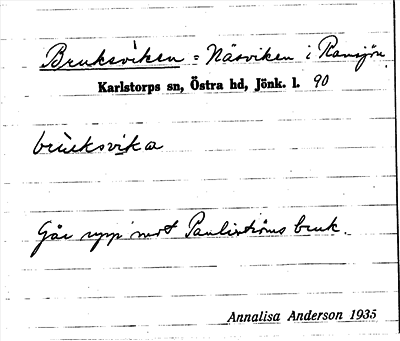 Bruksviken = Näsviken i Ramsjön
Karlstorps sn, Östra hd, Jönk. l. 90
brùksvika
Går upp mot Pauliströms bruk.
Annalisa Anderson 1935